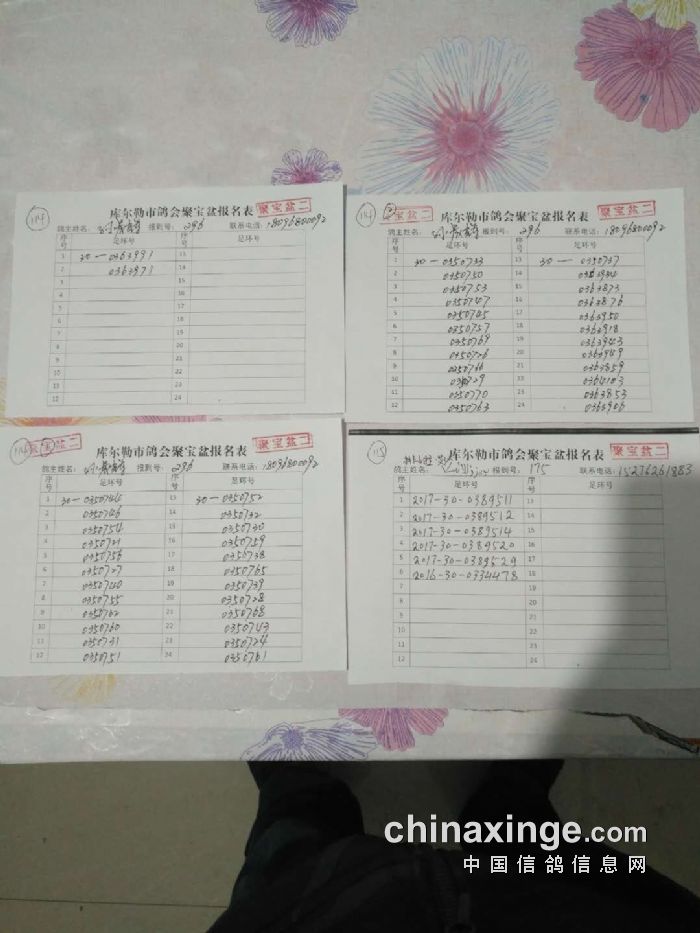 114
库尔勒市鸽会聚宝盆报名表
聚宝盆二
鸽主姓名: 报到号: 296 联系电话: 18096800092
序号 足环号 序号 足环号
1 30-0363991 13
2 0363973 14
3 15
4 16
5 17
6 18
7 19
8 20
9 21
10 22
11 23
12 24
114
宝盆二
库尔勒市鸽会聚宝盆报名表
聚宝盆二
鸽主姓名: 报到号: 296 联系电话: 18096800092
序号 足环号 序号 足环号
1 30-0350733 13 30-0350737
2 0350750 14
3 0350753 15 0363873
4 0350747 16 0363876
5 0350745 17 0363950
6 0350757 18 0363918
7 0350769 19 0363943
8 0350726 20 0363949
9 0350766 21 0363859
10 22 0364103
11 0350770 23 0363853
12 0350763 24 0363906
114
宝盆二
库尔勒市鸽会聚宝盆报名表
聚宝盆二
鸽主姓名: 报到号: 296 联系电话: 18096800092
序号 足环号 序号 足环号
1 30-0350744 13 30-0350752
2 0350746 14 0350732
3 0350754 15 0350730
4 0350721 16 0350759
5 0350756 17 0350738
6 0350727 18 0350765
7 0350740 19 0350739
8 0350755 20 0350728
9 0350762 21 0350768
10 0350760 22 0350743
11 0350731 23 0350724
12 0350751 24 0350761
115
库尔勒市鸽会聚宝盆报名表
聚宝盆二
鸽主姓名: 报到号: 175 联系电话: 15276261883
序号 足环号 序号 足环号
1 2017-30-0389511 13
2 2017-30-0389512 14
3 2017-30-0389514 15
4 2017-30-0389520 16
5 2017-30-0389529 17
6 2016-30-0334478 18
7 19
8 20
9 21
10 22
11 23
12 24
chinaxinge.com
中国信鸽信息网